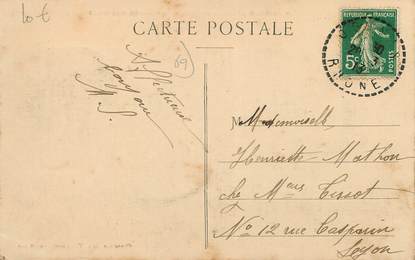 10 €
CARTE POSTALE
69
RÉPUBLIQUE FRANÇAISE
5c
POSTES
RHONE
M. S.
Mademoiselle
Henriette Mathon
chez Mme Tissot
No 12 rue Casparin
Lyon